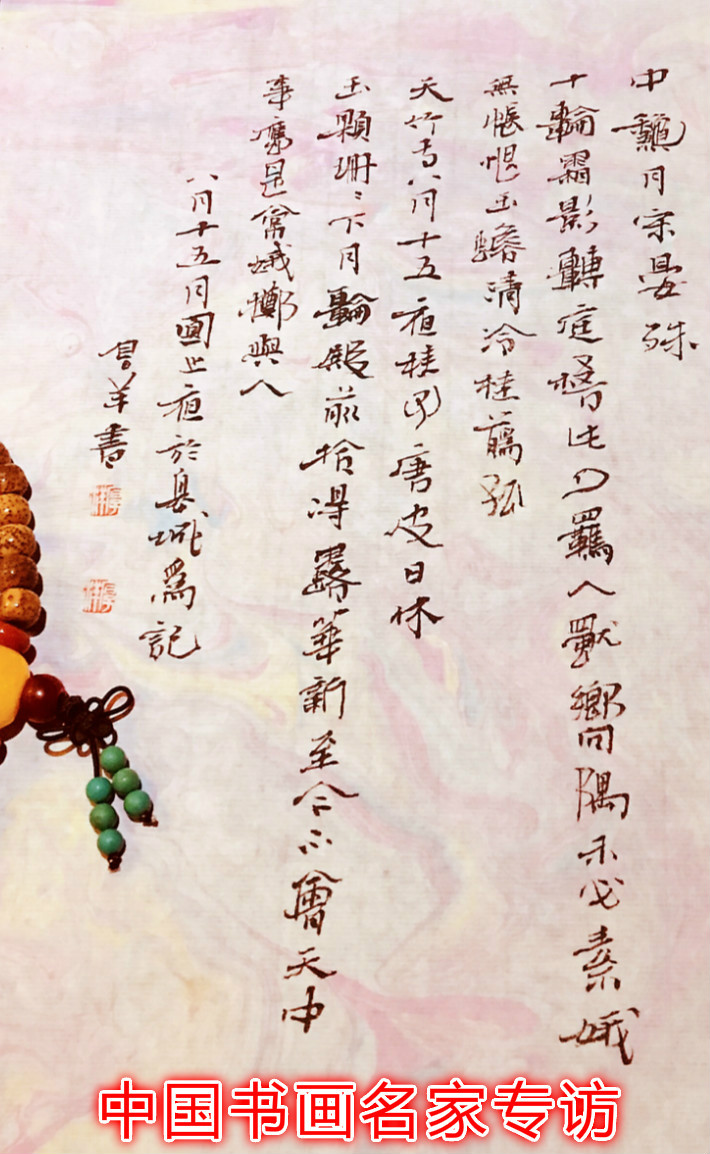 中龝月宋晏殊
十輪霜影轉庭梧此夕羈人獨嚮隅未必素娥
無悵恨玉蟾清冷桂蘤孤
天竺寺八月十五夜桂子唐皮日休
玉顆珊珊下月輪殿前拾得露華新至今不會天中
事應是常娥擲與人
八月十五月圓之夜於縣城爲記
書
中国书画名家专访